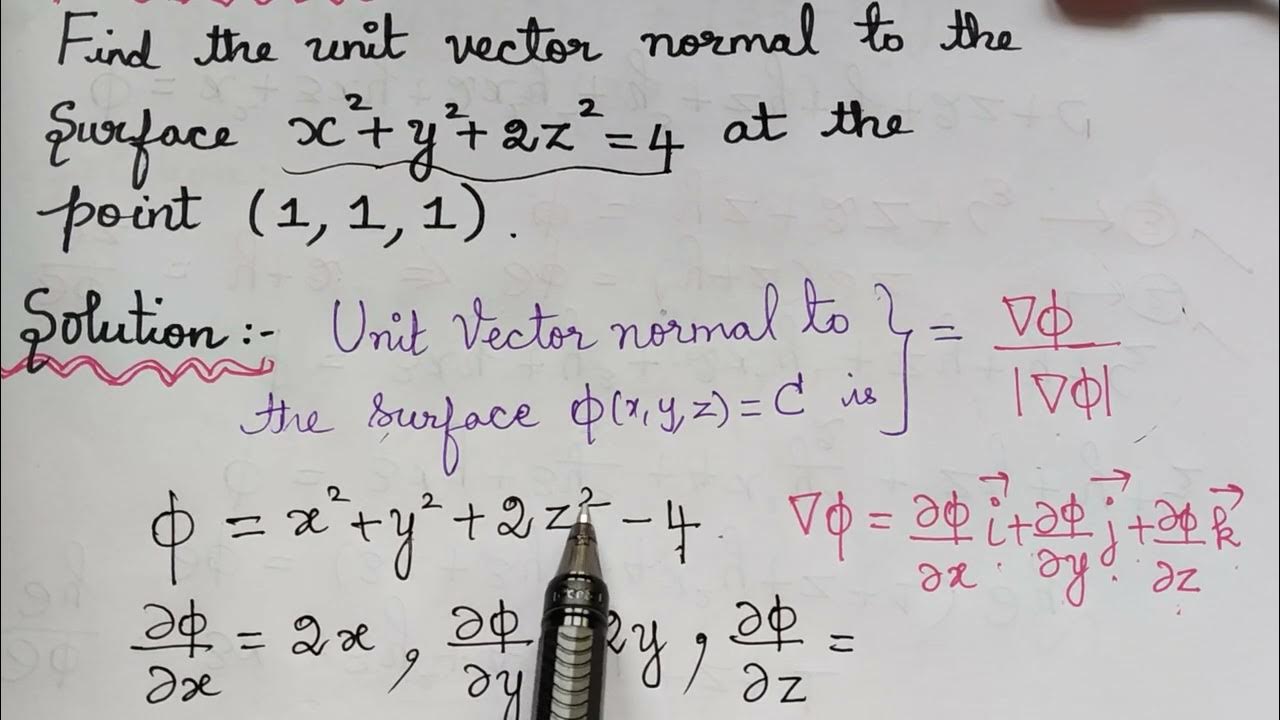 Find the unit vector normal to the
Surface x²+y²+2z²=4 at the
point (1, 1, 1).
Solution :- Unit Vector normal to } = ∇ϕ / |∇ϕ|
the surface ϕ(x,y,z)=C is
ϕ = x²+y²+2z²-4 ∇ϕ = ∂ϕ/∂x i⃗ + ∂ϕ/∂y j⃗ + ∂ϕ/∂z k⃗
∂ϕ/∂x = 2x, ∂ϕ/∂y 2y, ∂ϕ/∂z =